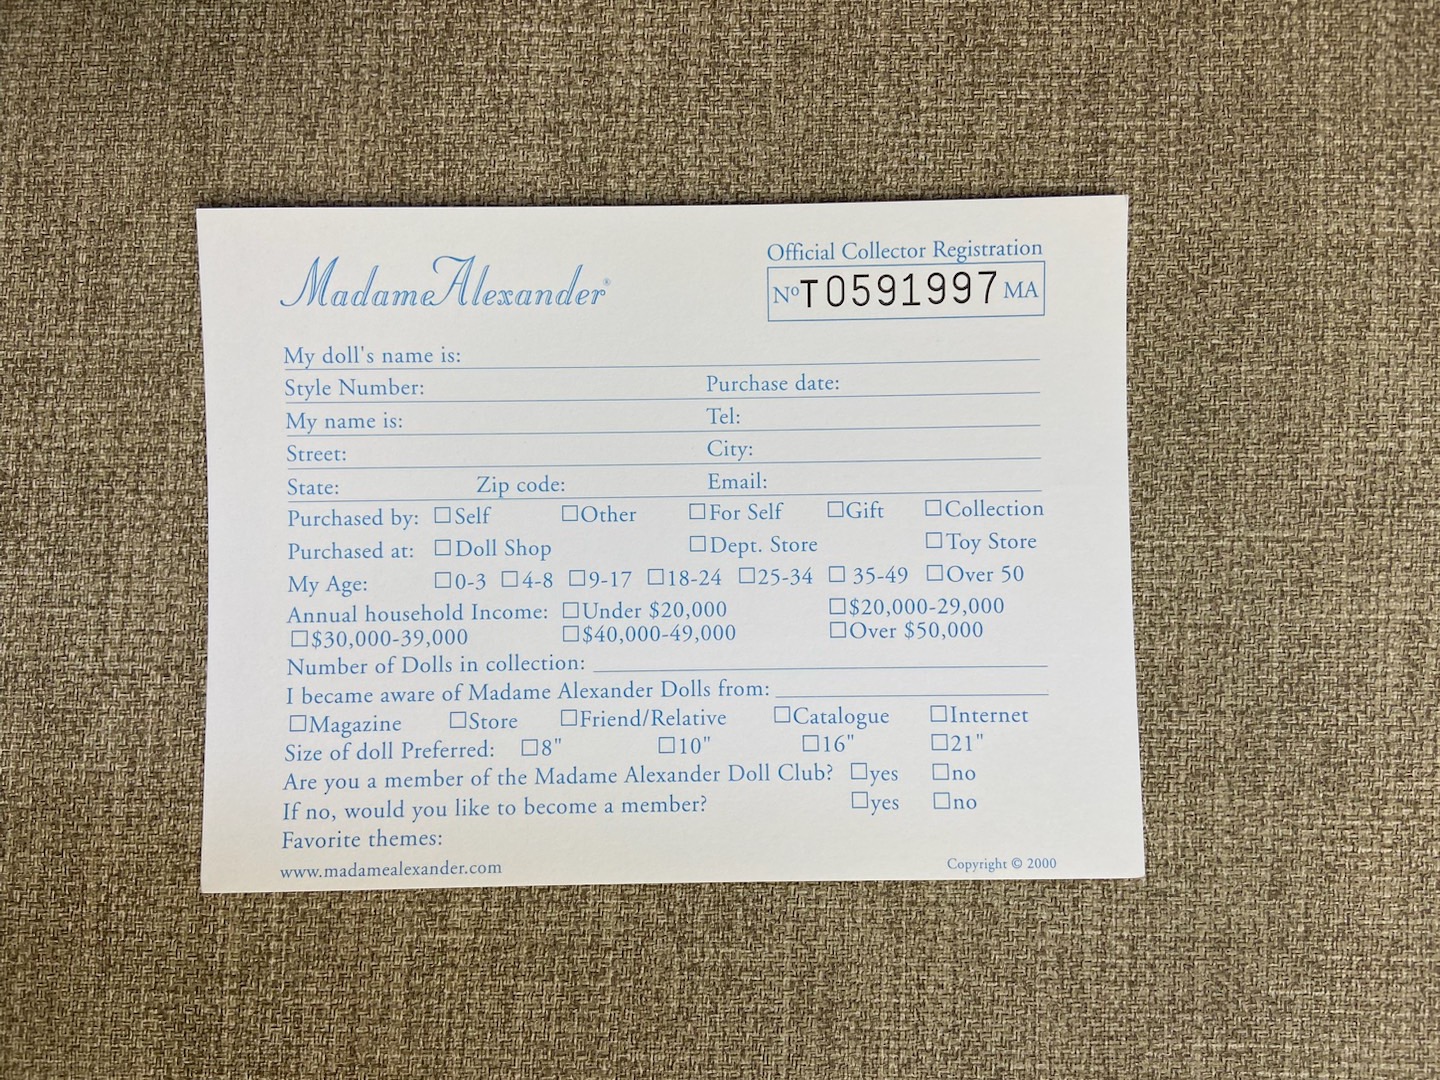 Madame Alexander®
Official Collector Registration
Nº T0591997 MA
My doll's name is:
Style Number: Purchase date:
My name is: Tel:
Street: City:
State: Zip code: Email:
Purchased by: ☐Self ☐Other ☐For Self ☐Gift ☐Collection
Purchased at: ☐Doll Shop ☐Dept. Store ☐Toy Store
My Age: ☐0-3 ☐4-8 ☐9-17 ☐18-24 ☐25-34 ☐ 35-49 ☐Over 50
Annual household Income: ☐Under $20,000 ☐$20,000-29,000
☐$30,000-39,000 ☐$40,000-49,000 ☐Over $50,000
Number of Dolls in collection:
I became aware of Madame Alexander Dolls from:
☐Magazine ☐Store ☐Friend/Relative ☐Catalogue ☐Internet
Size of doll Preferred: ☐8" ☐10" ☐16" ☐21"
Are you a member of the Madame Alexander Doll Club? ☐yes ☐no
If no, would you like to become a member? ☐yes ☐no
Favorite themes:
www.madamealexander.com Copyright © 2000